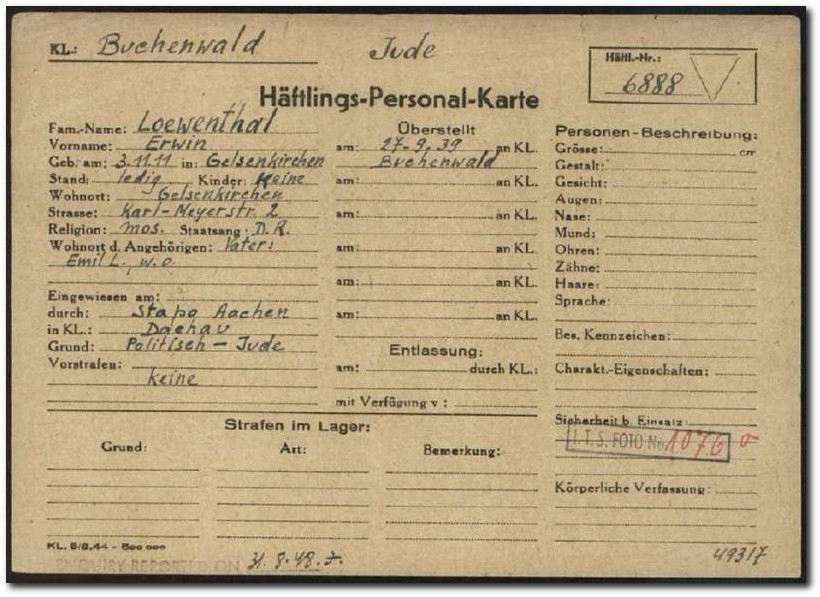 KL.: Buchenwald
Jude
Häftl.-Nr.:
6888
Häftlings-Personal-Karte
Fam.-Name: Loewenthal
Vorname: Erwin
Geb. am: 3.11.11 in: Gelsenkirchen
Stand: ledig Kinder: Keine
Wohnort: Gelsenkirchen
Strasse: Karl-Meyerstr. 2
Religion: mos. Staatsang.: D.R.
Wohnort d. Angehörigen: Vater:
Emil L., w.o.
Eingewiesen am:
durch: Stapo Aachen
in KL.: Dachau
Grund: Politisch - Jude
Vorstrafen:
keine
Überstellt
am: 27.9.39 an KL.
Buchenwald
am: an KL.
am: an KL.
am: an KL.
am: an KL.
am: an KL.
Entlassung:
am: durch KL.:
mit Verfügung v.:
Personen-Beschreibung:
Grösse: cm
Gestalt:
Gesicht:
Augen:
Nase:
Mund:
Ohren:
Zähne:
Haare:
Sprache:
Bes. Kennzeichen:
Charakt.-Eigenschaften:
Sicherheit b. Einsatz:
I.T.S. FOTO No 1076
Körperliche Verfassung:
Strafen im Lager:
Grund: Art: Bemerkung:
KL. 5/8.44 - 500 000
ENQUIRY REPORTED ON 31.8.48.
49317